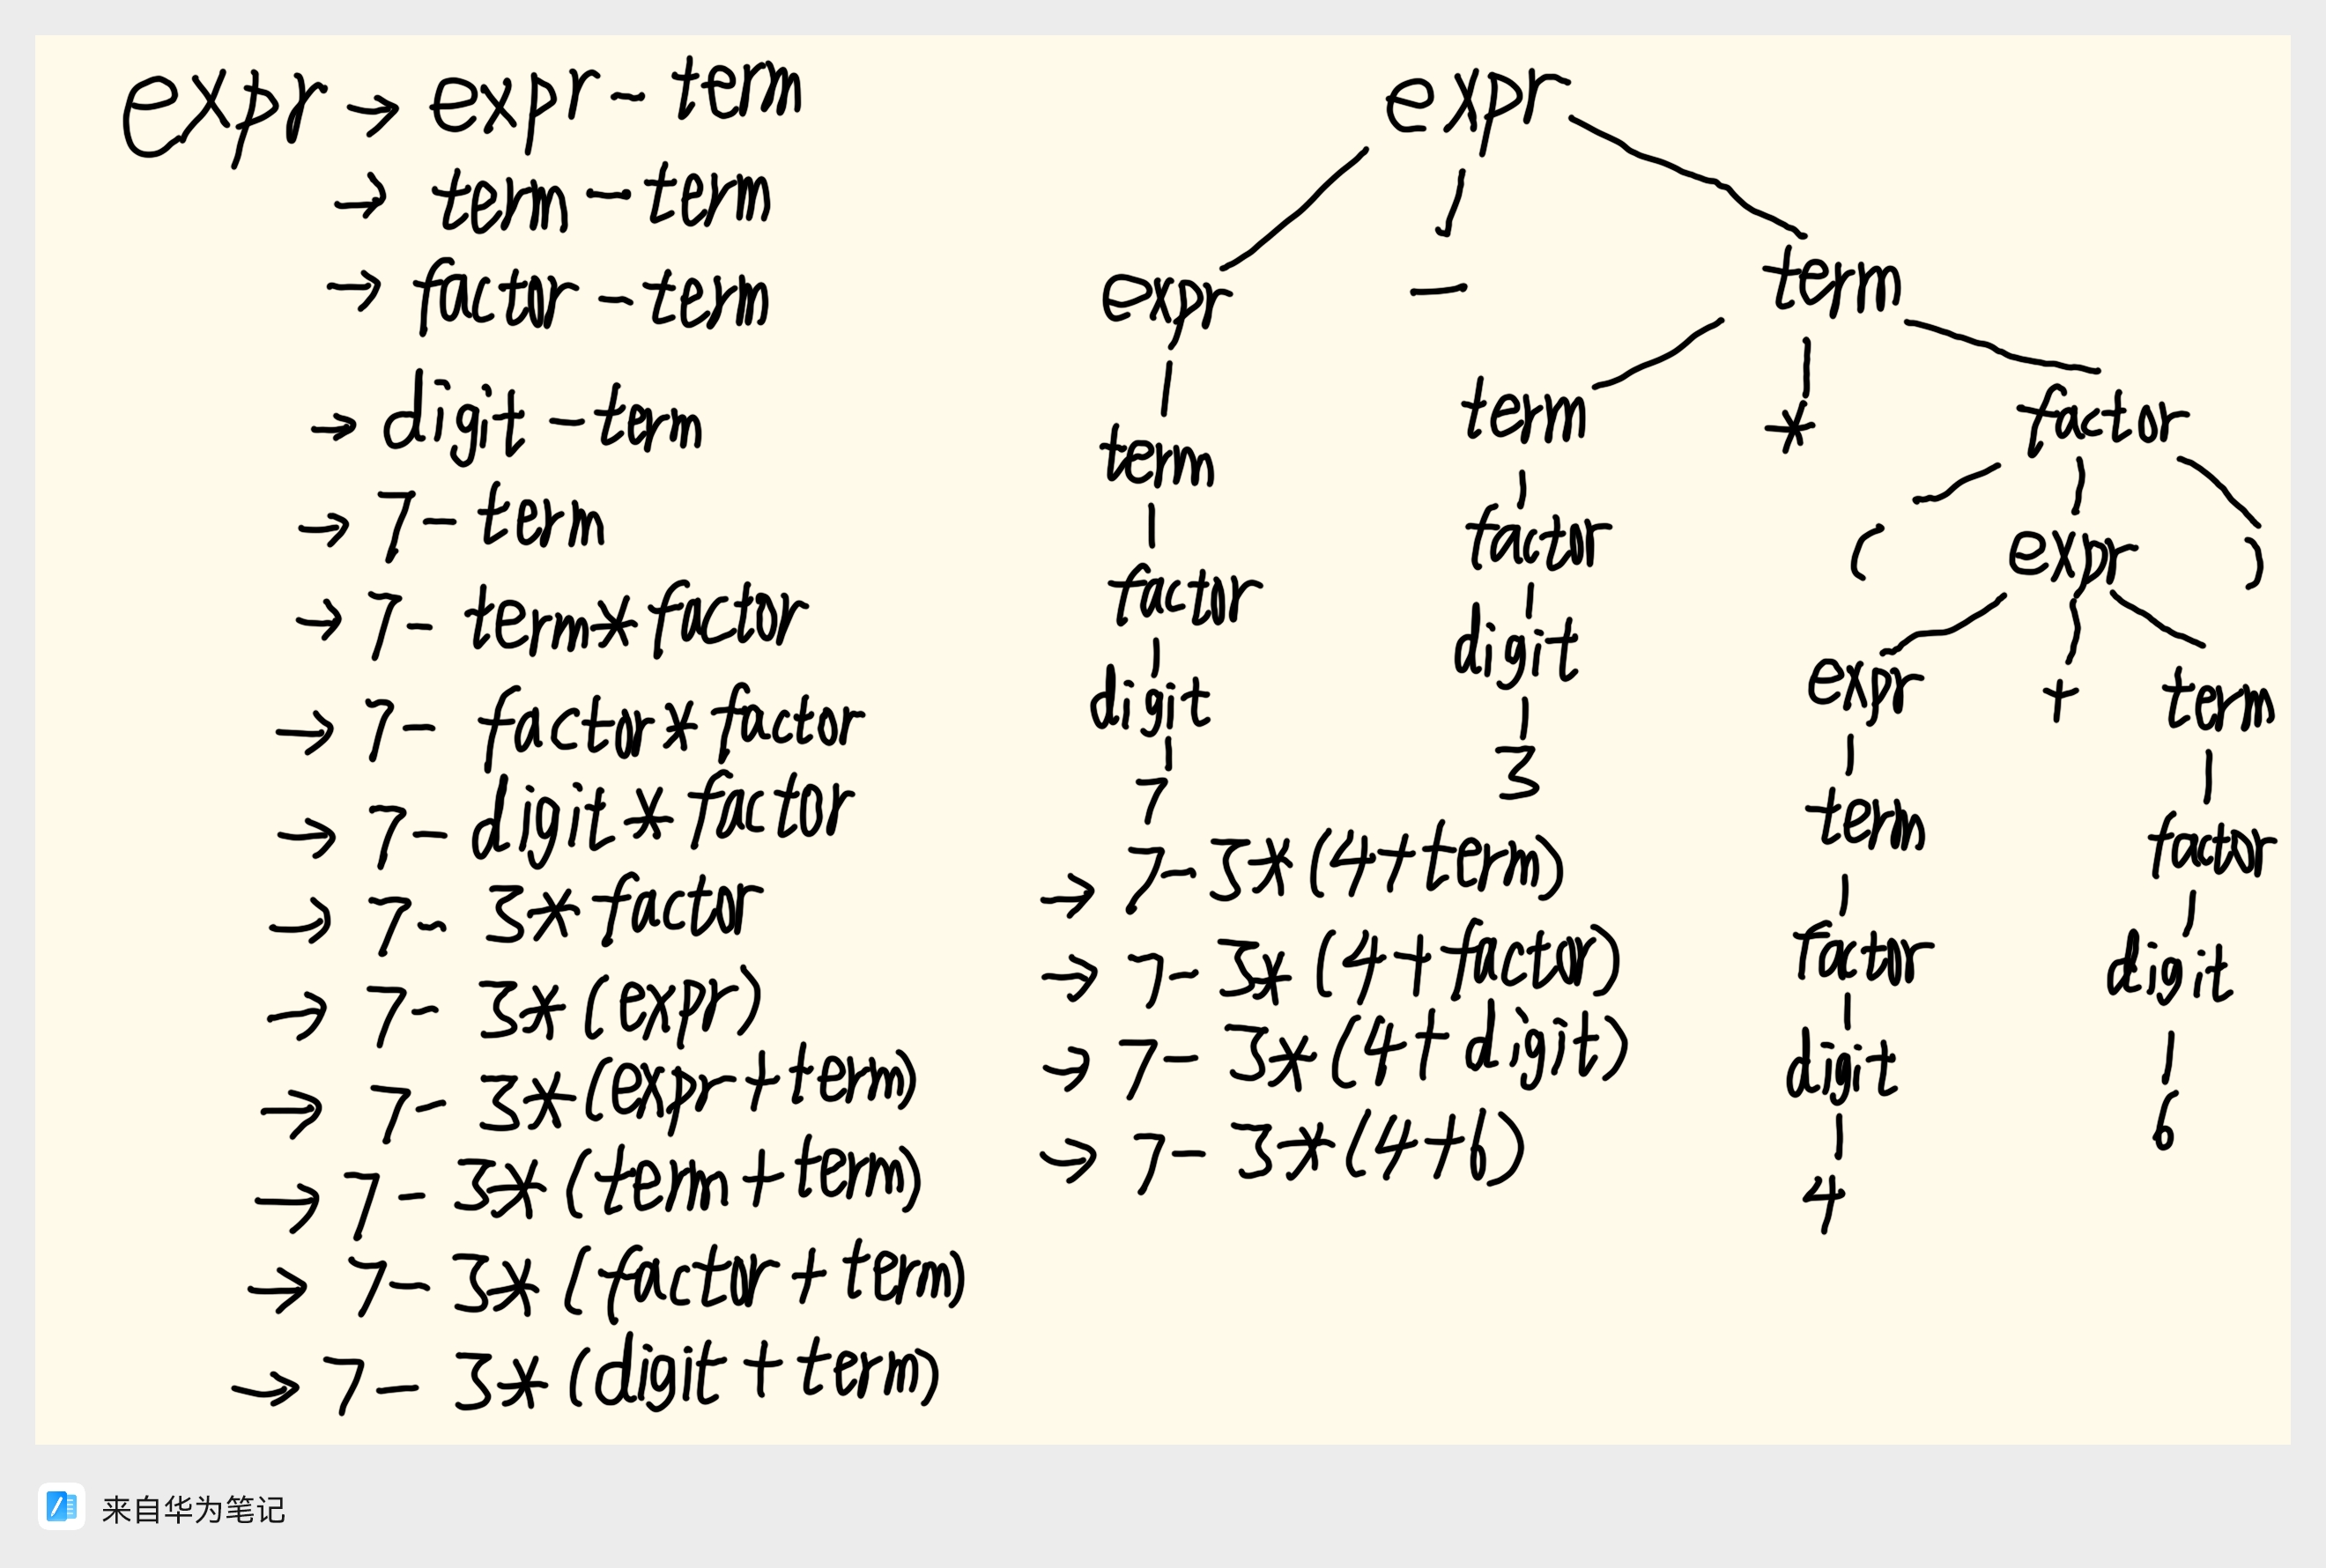 expr → expr - term
→ term - term
→ factor - term
→ digit - term
→ 7 - term
→ 7 - term * factor
→ 7 - factor * factor
→ 7 - digit * factor
→ 7 - 3 * factor
→ 7 - 3 * (expr)
→ 7 - 3 * (expr + term)
→ 7 - 3 * (term + term)
→ 7 - 3 * (factor + term)
→ 7 - 3 * (digit + term)
→ 7 - 3 * (4 + term)
→ 7 - 3 * (4 + factor)
→ 7 - 3 * (4 + digit)
→ 7 - 3 * (4 + 6)
expr
expr - term
term * factor
term
factor
( expr )
factor
digit
expr + term
digit
7
3
term
factor
factor
digit
digit
6
4
来自华为笔记